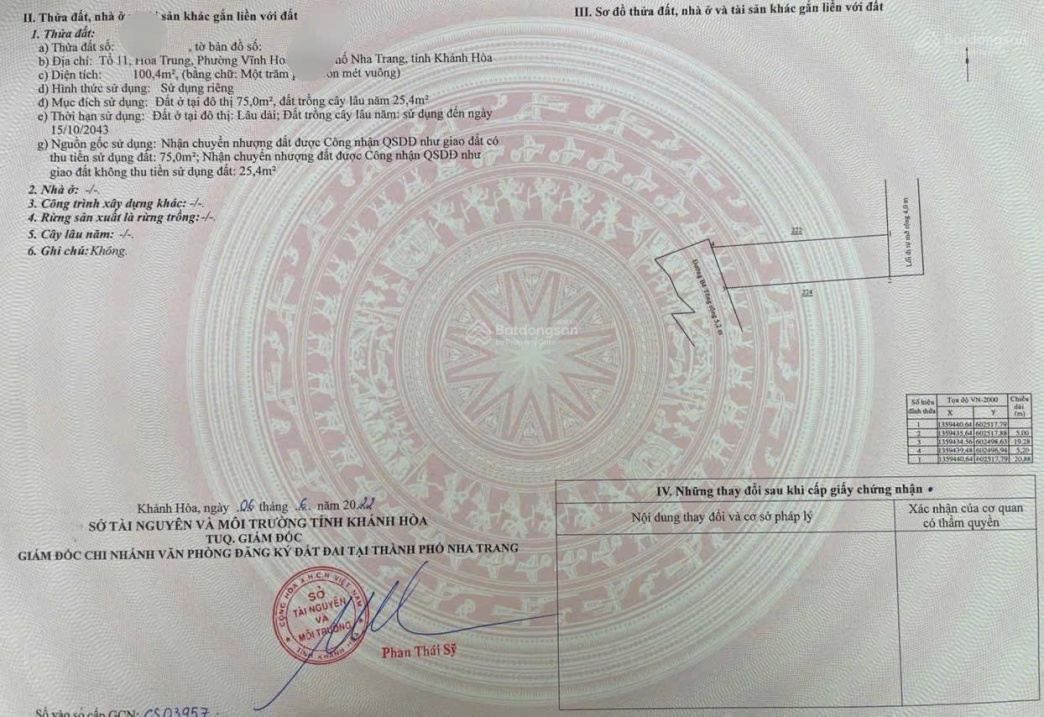 II. Thửa đất, nhà ở sản khác gắn liền với đất
1. Thửa đất:
a) Thửa đất số: , tờ bản đồ số:
b) Địa chỉ: Tổ 11, Hòa Trung, Phường Vĩnh Ho Nha Trang, tỉnh Khánh Hòa
c) Diện tích: 100,4m², (bằng chữ: Một trăm mét vuông)
d) Hình thức sử dụng: Sử dụng riêng
đ) Mục đích sử dụng: Đất ở tại đô thị 75,0m², đất trồng cây lâu năm 25,4m²
e) Thời hạn sử dụng: Đất ở tại đô thị: Lâu dài; Đất trồng cây lâu năm: sử dụng đến ngày
15/10/2043
g) Nguồn gốc sử dụng: Nhận chuyển nhượng đất được Công nhận QSDĐ như giao đất có
thu tiền sử dụng đất: 75,0m²; Nhận chuyển nhượng đất được Công nhận QSDĐ như
giao đất không thu tiền sử dụng đất: 25,4m²
2. Nhà ở: -/-.
3. Công trình xây dựng khác: -/-.
4. Rừng sản xuất là rừng trồng: -/-.
5. Cây lâu năm: -/-.
6. Ghi chú: Không.
Khánh Hòa, ngày 06 tháng 6 năm 2022
SỞ TÀI NGUYÊN VÀ MÔI TRƯỜNG TỈNH KHÁNH HÒA
TUQ. GIÁM ĐỐC
GIÁM ĐỐC CHI NHÁNH VĂN PHÒNG ĐĂNG KÝ ĐẤT ĐAI TẠI THÀNH PHỐ NHA TRANG
CỘNG HÒA X.H.C.N VIỆT NAM
SỞ
TÀI NGUYÊN
VÀ
MÔI TRƯỜNG
TỈNH KHÁNH HÒA
Phan Thái Sỹ
Số vào sổ cấp GCN: CS03957
III. Sơ đồ thửa đất, nhà ở và tài sản khác gắn liền với đất
Batdongsan
222
224
Đường Bê Tông rộng 5,2 m
Lối đi tự mở rộng 4,0 m
Batdongsan
Số hiệu đỉnh thửa Tọa độ VN-2000 Chiều dài (m)
X Y
1 1359440,64 602517,79
2 1359435,64 602517,88 5,00
3 1359434,56 602498,63 19,28
4 1359439,48 602496,94 5,20
1 1359440,64 602517,79 20,88
IV. Những thay đổi sau khi cấp giấy chứng nhận
Nội dung thay đổi và cơ sở pháp lý
Xác nhận của cơ quan
có thẩm quyền